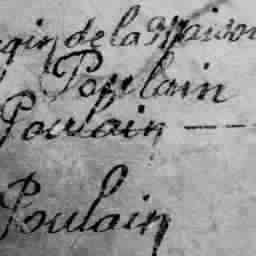 de la Maison
Poulain
Poulain
Poulain